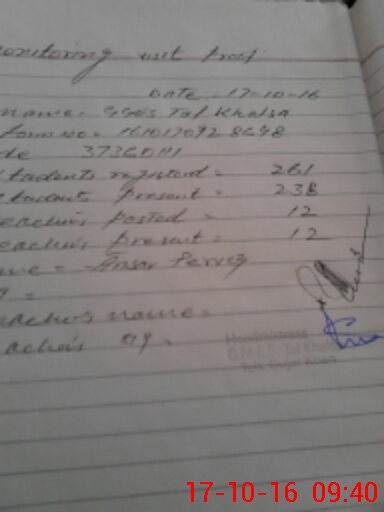 onitoring visit proof
Date: 17-10-16
name: GGES Tal Khalsa
form no = 1610170928648
de 37360111
students registered = 261
students present = 238
eachers posted = 12
eachers present = 12
me = Ansar Pervez
=
eacher's name =
eacher's sig =
Headmistress
G.M.E.S. Tal Khalsa
Teh: Gujar Khan
17-10-16 09:40